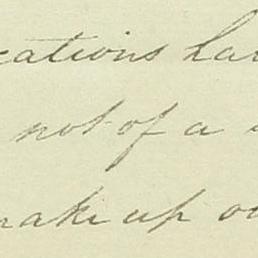 cations ha
not of a
make up o